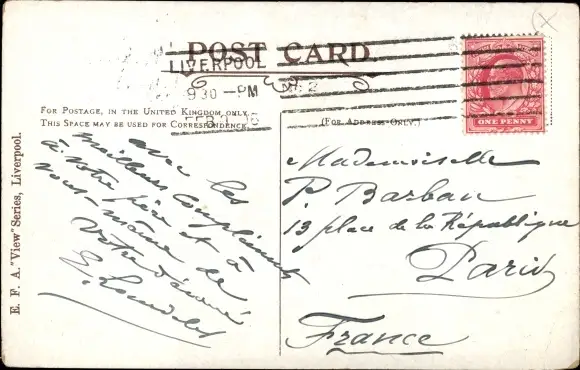 POST CARD.
LIVERPOOL
9 30 - PM
FEB
FOR POSTAGE, IN THE UNITED KINGDOM ONLY,
THIS SPACE MAY BE USED FOR CORRESPONDENCE.
(FOR ADDRESS ONLY.)
ONE PENNY
E. F. A. "View" Series, Liverpool.
avec les
meilleurs compliments
à votre père et à
vous-même de
votre dévoué
Mademoiselle
P. Barbau
13 place de la République
Paris
France